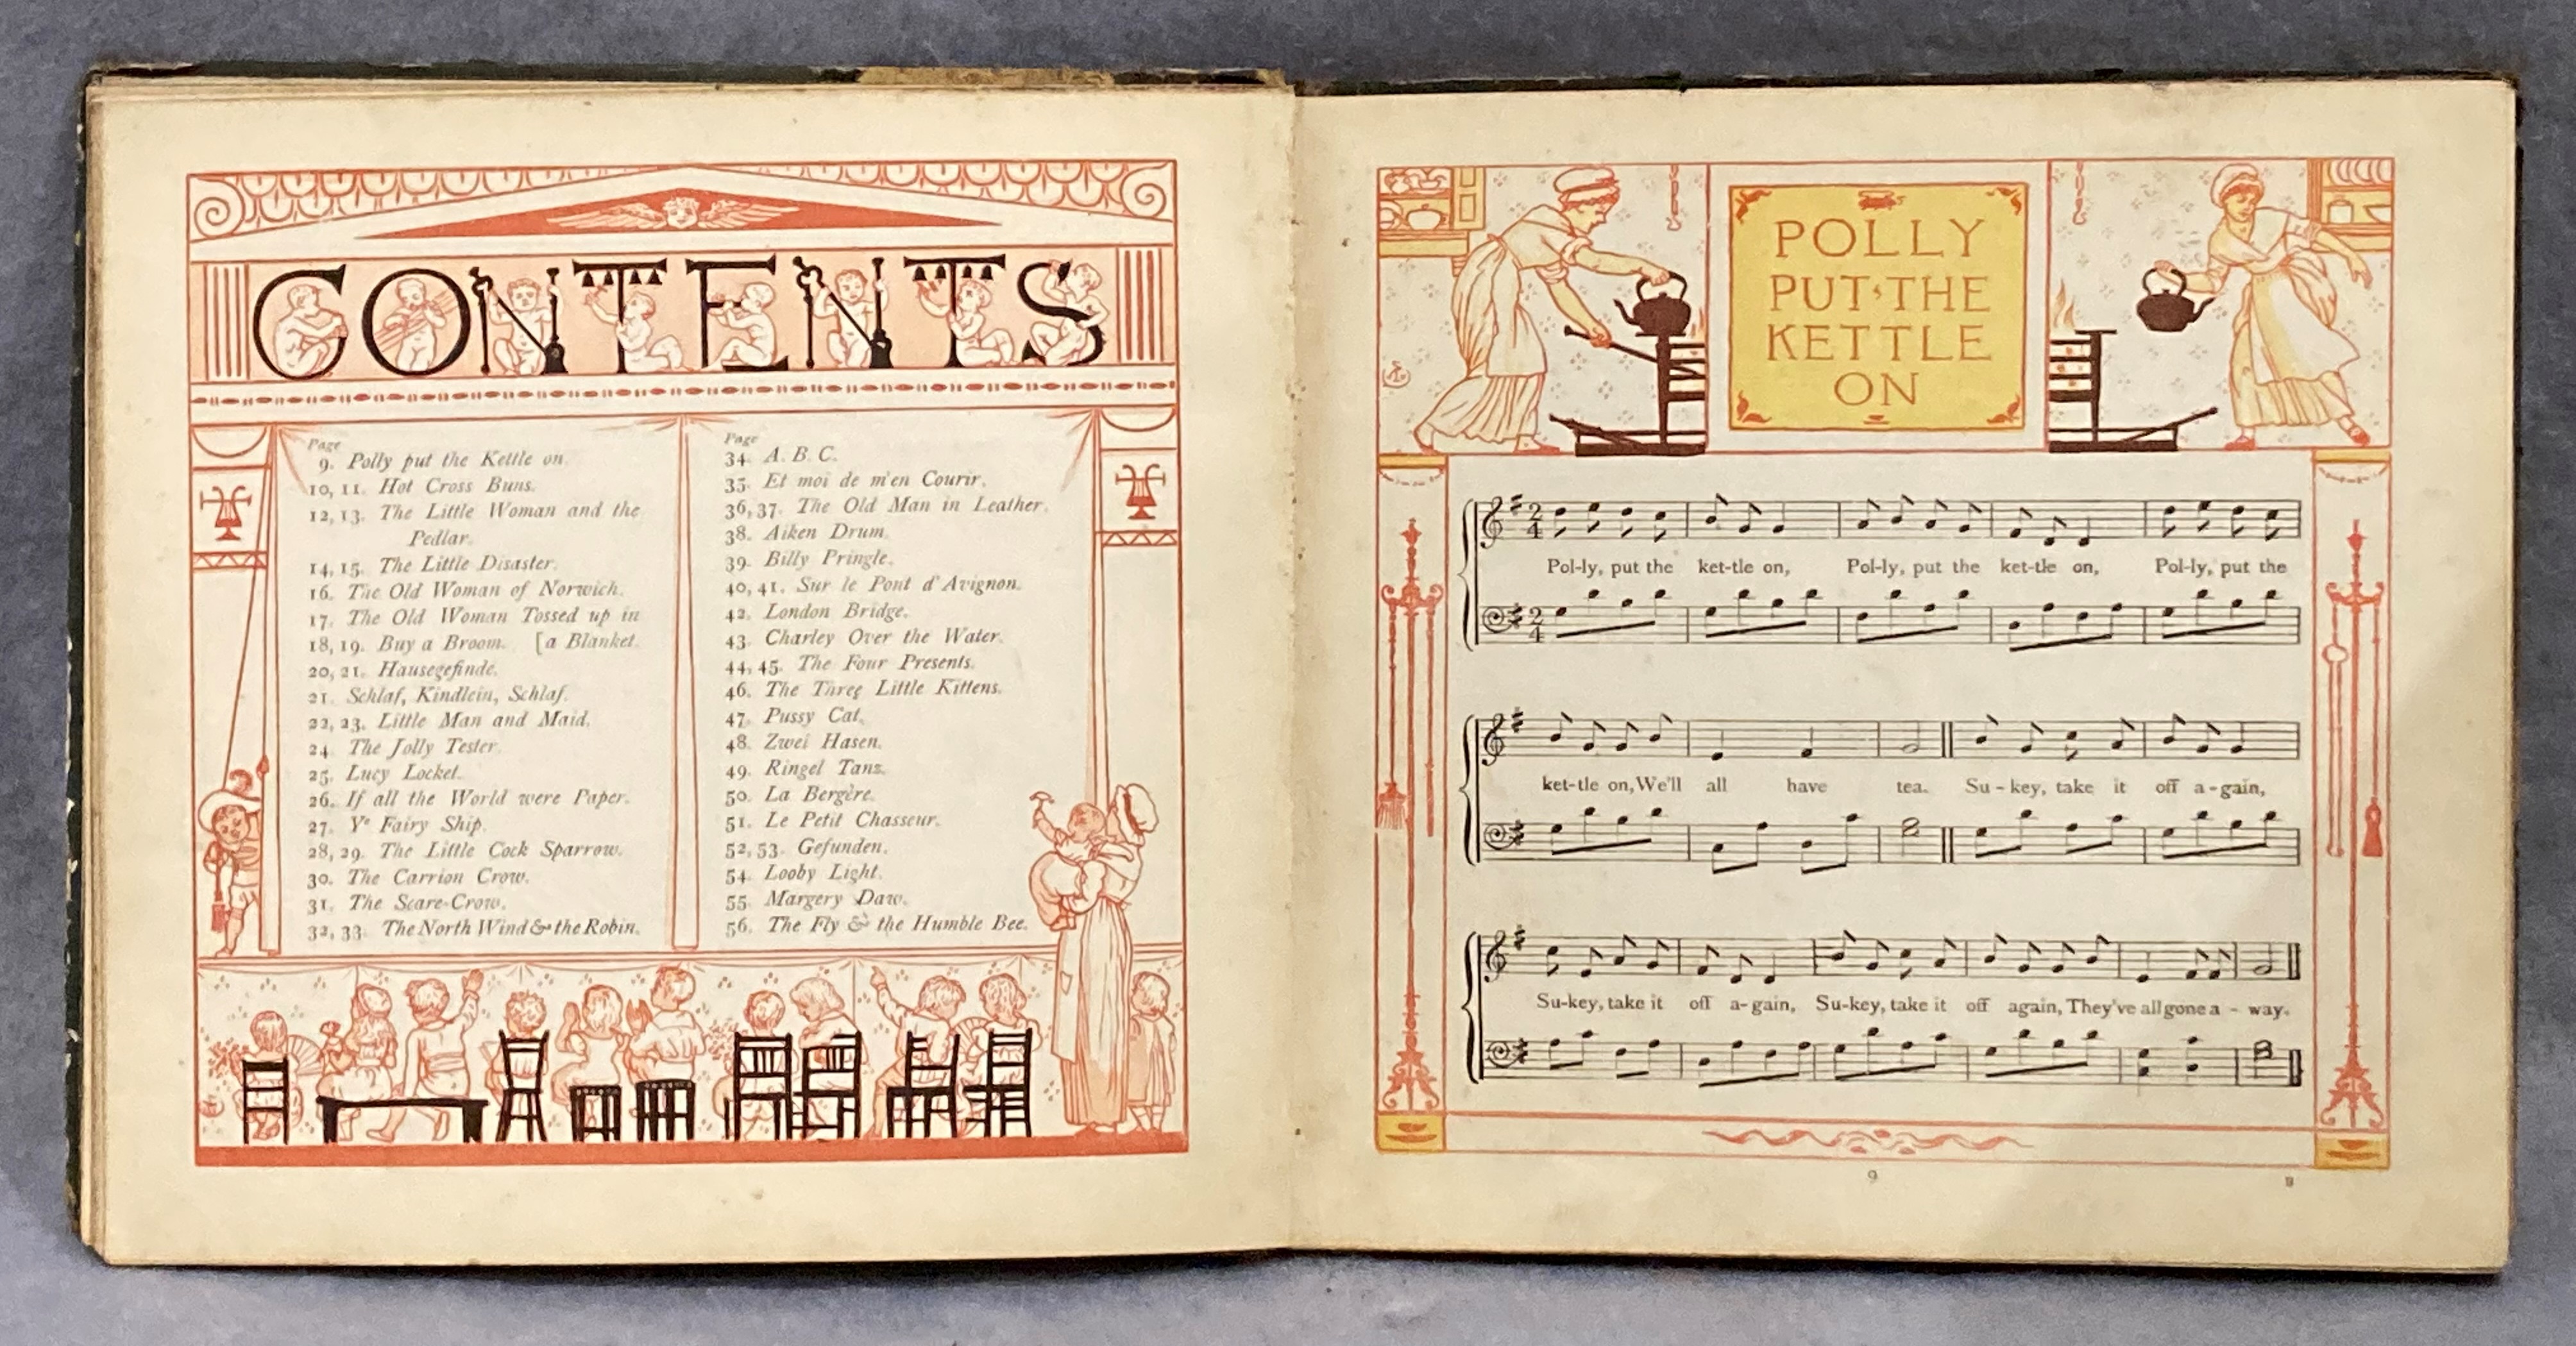 CONTENTS
Page
9. Polly put the Kettle on.
10, 11. Hot Cross Buns.
12, 13. The Little Woman and the
Pedlar.
14, 15. The Little Disaster.
16. The Old Woman of Norwich.
17. The Old Woman Tossed up in
18, 19. Buy a Broom. [a Blanket.
20, 21. Hausegefinde.
21. Schlaf, Kindlein, Schlaf.
22, 23. Little Man and Maid.
24. The Jolly Tester.
25. Lucy Locket.
26. If all the World were Paper.
27. Ye Fairy Ship.
28, 29. The Little Cock Sparrow.
30. The Carrion Crow.
31. The Scare-Crow.
32, 33. The North Wind & the Robin.
Page
34. A. B. C.
35. Et moi de m'en Courir.
36, 37. The Old Man in Leather.
38. Aiken Drum.
39. Billy Pringle.
40, 41. Sur le Pont d'Avignon.
42. London Bridge.
43. Charley Over the Water.
44, 45. The Four Presents.
46. The Three Little Kittens.
47. Pussy Cat.
48. Zwei Hasen.
49. Ringel Tanz.
50. La Bergère.
51. Le Petit Chasseur.
52, 53. Gefunden.
54. Looby Light.
55. Margery Daw.
56. The Fly & the Humble Bee.
POLLY
PUT THE
KETTLE
ON
2 4
Pol-ly, put the ket-tle on, Pol-ly, put the ket-tle on, Pol-ly, put the
2 4
ket-tle on, We'll all have tea. Su-key, take it off a-gain,
Su-key, take it off a-gain, Su-key, take it off again, They've all gone a-way.
9
B